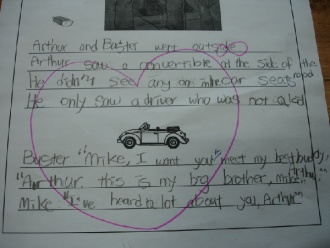 Arthur and Buster went outside.
Arthur saw a convertible at the side of the road
He didn't see any one in the car seat.
He only saw a driver who was not a kid
Buster: "Mike, I want you meet my best buddy,
"Arthur. this is my big brother, Mike."
Mike: "I've heard to lot about you, Arthur"